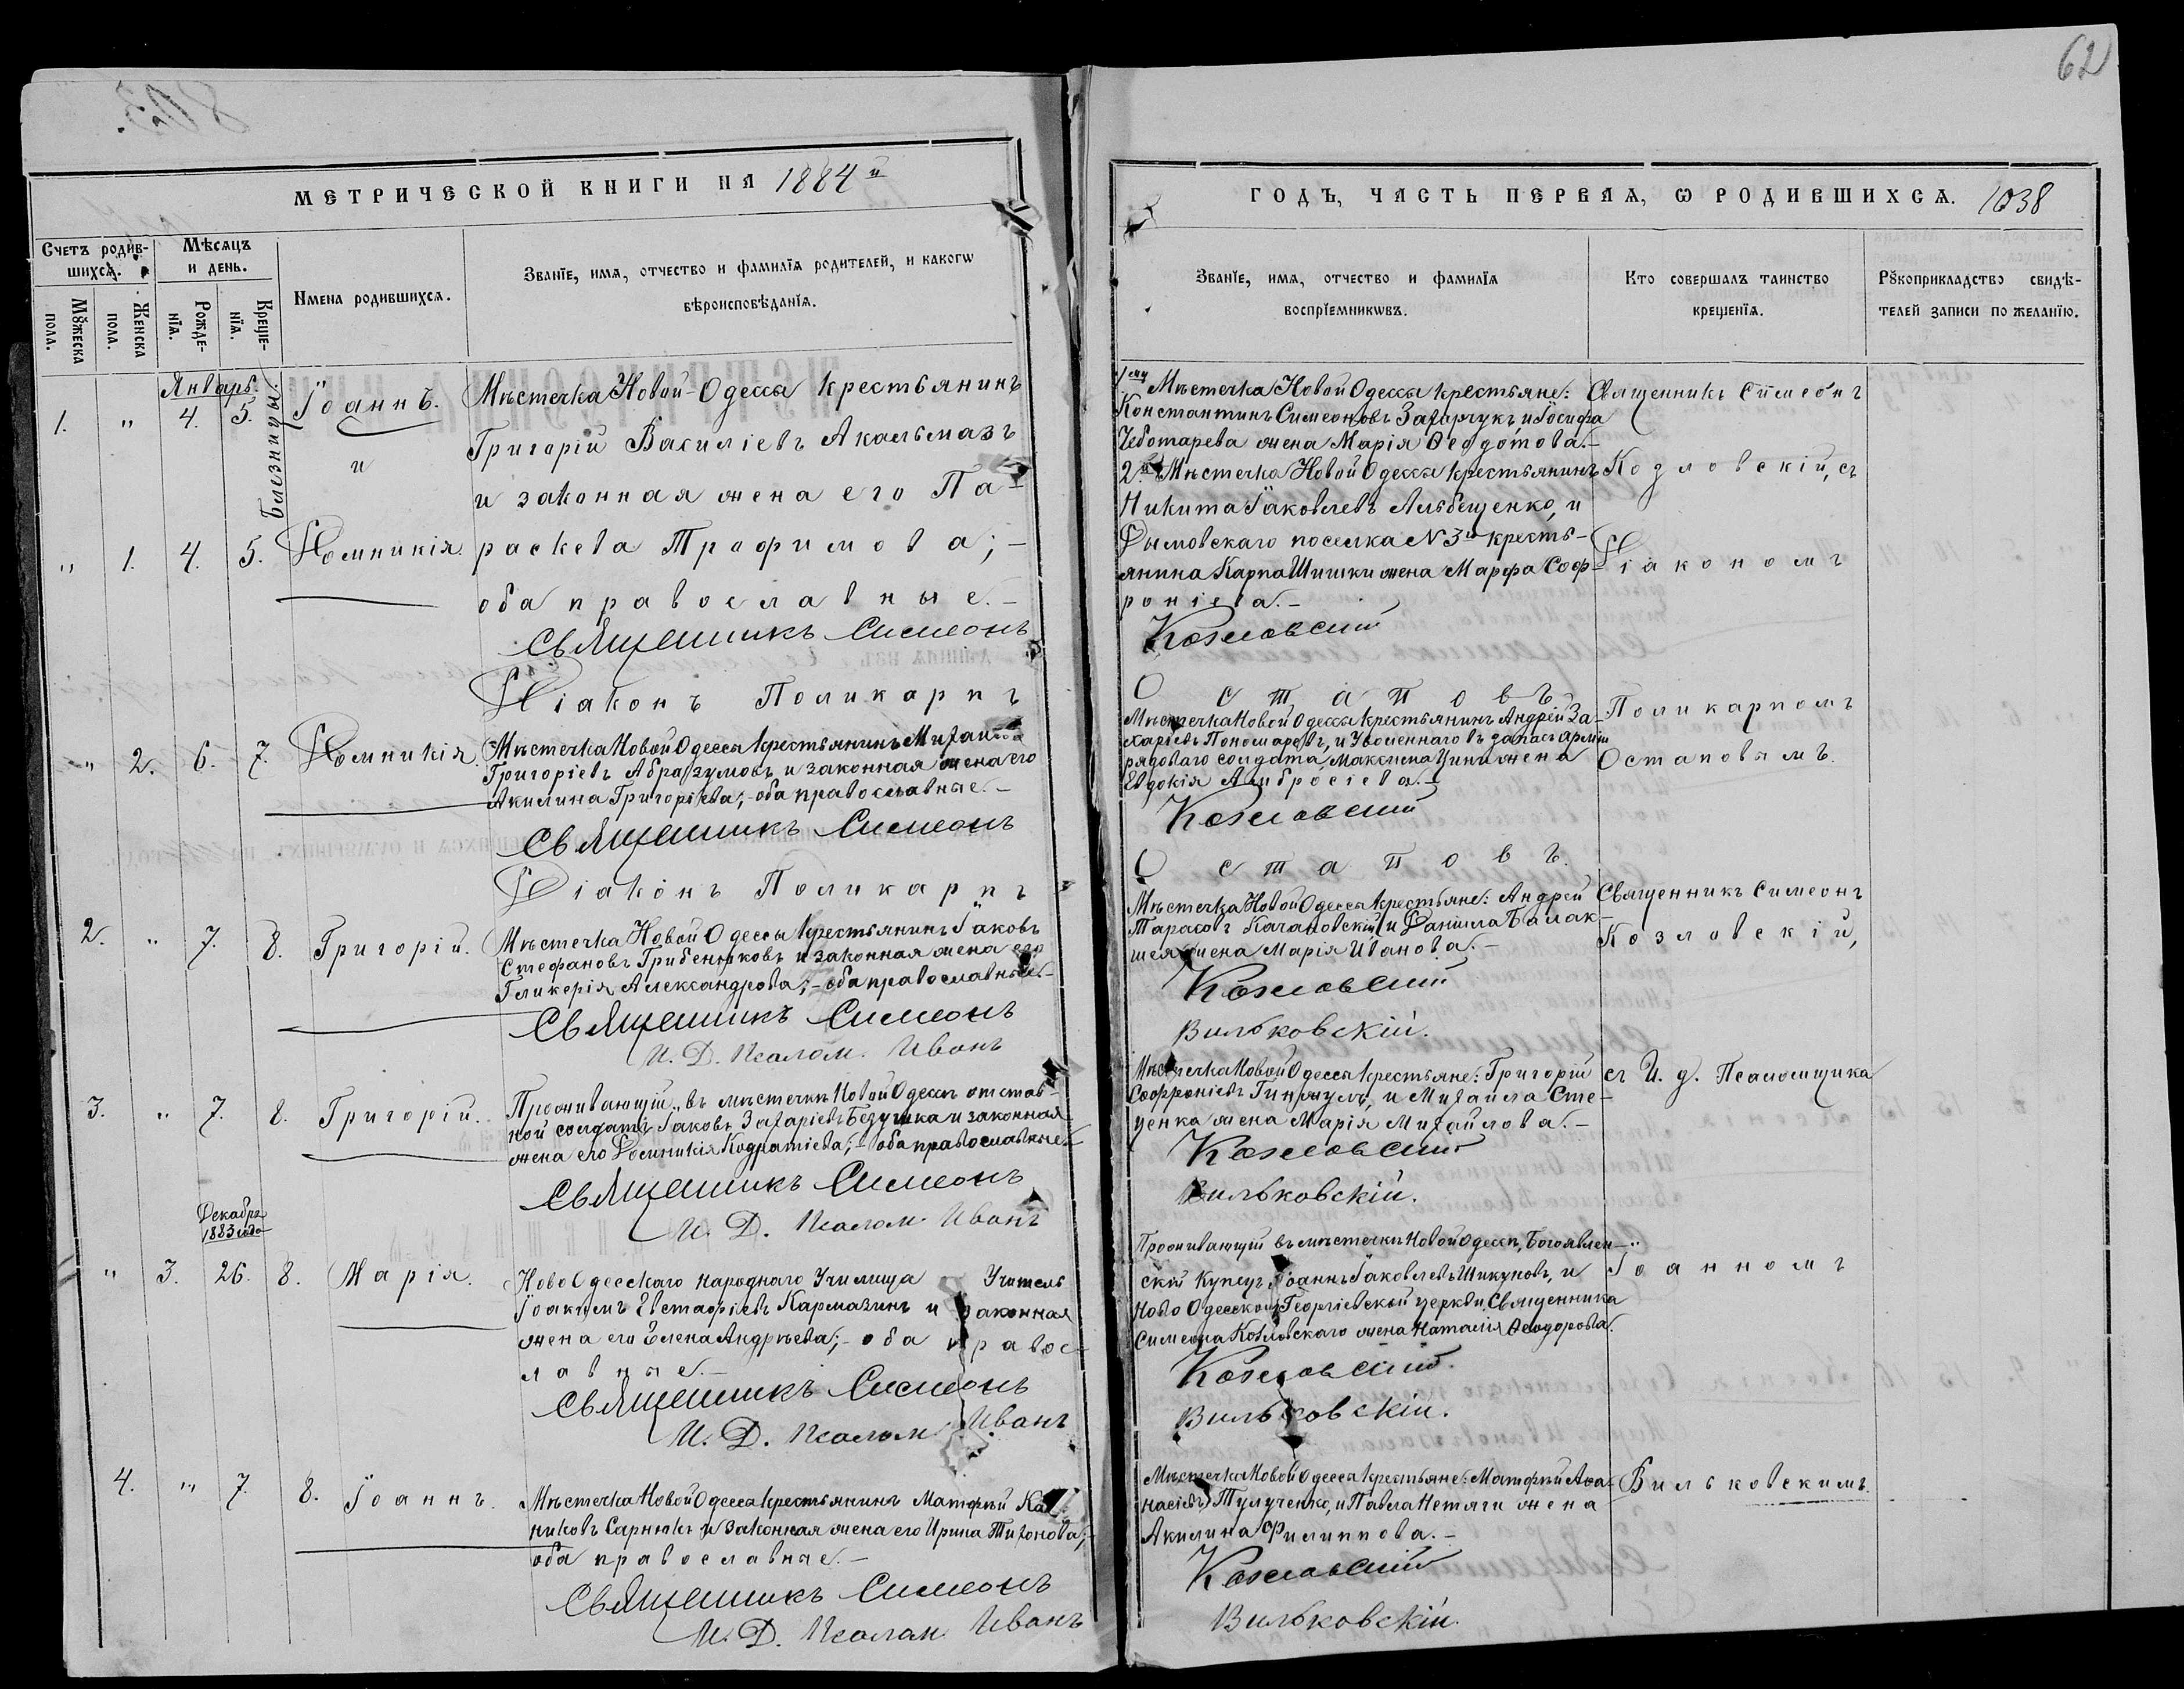 62
МЕТРИЧЕСКОЙ КНИГИ НА 1884й
ГОДЪ, ЧАСТЬ ПЕРВАЯ, Ѡ РОДИВШИХСѦ. 1038
Счетъ родив-
шихсѧ.
Мꙋжеска пола.
Женска пола.
Мѣсѧцъ
и день.
Рожде-
нїѧ.
Креще-
нїѧ.
Имена родившихсѧ.
Званїе, имѧ, отчество и фамилїѧ родителей, и какогѡ
вѣроисповѣданїѧ.
Званїе, имѧ, отчество и фамилїѧ
воспрїемникѡвъ.
Кто совершалъ таинство
крещенїѧ.
Рꙋкоприкладство свидѣ-
телей записи по желанїю.
Январь.
1. " 4. 5. Близницы. Іоаннъ.
и
" 1. 4. 5. Домникія
Мѣстечка Новой-Одессы крестьянинъ
Григорій Василіевъ Акальмазъ
и законная жена его Па-
раскева Трофимова;-
оба православные.-
Священникъ Симеонъ
Діаконъ Поликарпъ
Мѣстечка Новой Одессы крестьяне:
Константинъ Симеоновъ Захарчукъ и Іосифа
Чеботарева жена Марія Ѳеодотова.-
2. Мѣстечка Новой Одессы крестьянинъ
Никита Іаковлевъ Альбещенко, и
Дымовскаго поселка N 3й кресть-
янина Карпа Шишки жена Марфа Соф-
роніева.-
Козловскій
Остаповъ
Священникъ Сѵмеонъ
Козловскій, съ
Діакономъ
" 2. 6. 7. Домникія.
Мѣстечка Новой Одессы крестьянинъ Михаилъ
Григоріевъ Абразумовъ и законная жена его
Акилина Григоріева;-оба православные.-
Священникъ Симеонъ
Діаконъ Поликарпъ
Мѣстечка Новой Одессы крестьянинъ Андрей За-
харіевъ Пономаревъ, и Уволеннаго въ запасъ арміи
рядоваго солдата, Максима Цини жена
Евдокія Амбросіева.-
Козловскій
Остаповъ.
Поликарпомъ
Остаповымъ.
2. " 7. 8. Григорій.
Мѣстечка Новой Одессы крестьянинъ Іаковъ
Стефановъ Грибенюковъ и законная жена его
Гликерія Александрова;-оба православные.-
Священникъ Симеонъ
И. Д. Псалом. Иванъ
Мѣстечка Новой Одессы крестьяне: Андрей
Тарасовъ Качановскій и Даніила Балак-
шея жена Марія Иванова.-
Козловскій
Вильковскій.
Священникъ Симеонъ
Козловскій,
3. " 7. 8. Григорій.
Проживающій въ мѣстечкѣ Новой Одессѣ отстав-
ной солдатъ Іаковъ Захаріевъ Безушка и законная
жена его Домникія Кодратіева;-оба православные.-
Священникъ Симеонъ
И. Д. Псалом. Иванъ
Мѣстечка Новой Одессы крестьяне: Григорій
Софроніевъ Гинжулъ, и Михаила Сте-
ценка жена Марія Михайлова.-
Козловскій
Вильковскій.
съ И. д. Псаломщика
Декабрь
1883 года
" 3. 26. 8. Марія.
Ново Одесскаго народнаго Училища Учитель
Іоакимъ Евстафіевъ Кармазинъ и законная
жена его Елена Андрѣева;-оба правос-
лавные.-
Священникъ Симеонъ
И. Д. Псалом. Иванъ
Проживающій въ мѣстечкѣ Новой Одессѣ, Богоявлен-
скій Купецъ Іоаннъ Іаковлевъ Шикуновъ, и
Ново Одесской Георгіевской церкви, Священника
Симеона Козловскаго жена Наталія Ѳеодорова.
Козловскій.
Вильковскій.
Іоанномъ
4. " 7. 8. Іоаннъ.
Мѣстечка Новой Одессы крестьянинъ Матфѣй
никовъ Сарнюкъ и законная жена его Ирина Тихонова;-
оба православные.-
Священникъ Симеонъ
И. Д. Псалом. Иванъ
Мѣстечка Новой Одессы крестьяне: Матфѣй Аѳа-
насіевъ Тулученко, и Павла Нетяги жена
Акилина Филиппова.-
Козловскій
Вильковскій.
Вильковскимъ.